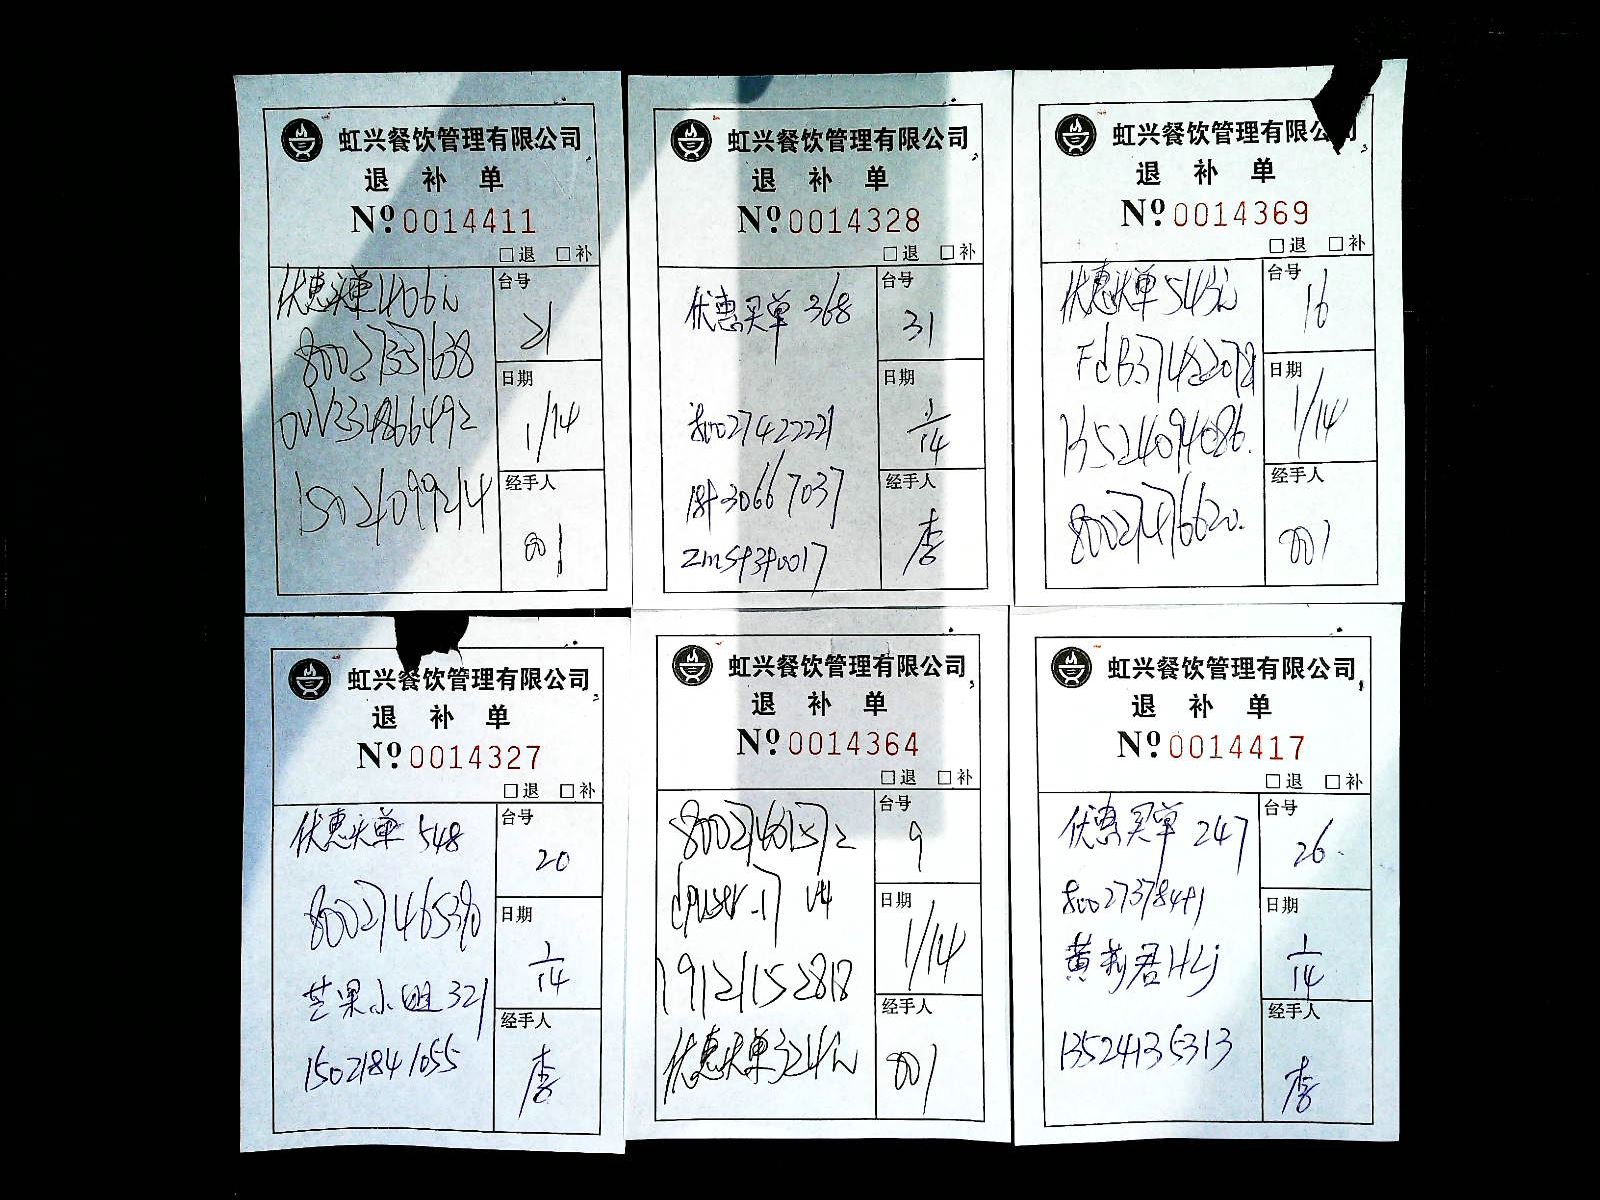 虹兴餐饮管理有限公司
退 补 单
Nº 0014411
□退 □补
优惠买单406元
台号
21
80027357638
日期
1/14
15024099214
经手人
001
虹兴餐饮管理有限公司
退 补 单
Nº 0014328
□退 □补
优惠买单 368
台号
31
80027422221
日期
1/14
经手人
李
虹兴餐饮管理有限公司
退 补 单
Nº 0014369
□退 □补
优惠买单 543元
台号
16
日期
1/14
13524094086.
80027476620.
经手人
001
虹兴餐饮管理有限公司
退 补 单
Nº 0014327
□退 □补
优惠买单 548
台号
20
80027465390
日期
1/14
芒果小姐321
15021841055
经手人
李
虹兴餐饮管理有限公司
退 补 单
Nº 0014364
□退 □补
80027461572
台号
9
日期
1/14
19121152818
优惠买单324元
经手人
001
虹兴餐饮管理有限公司
退 补 单
Nº 0014417
□退 □补
优惠买单 247
台号
26.
日期
1/14
黄莉君HLj
13524135313
经手人
李